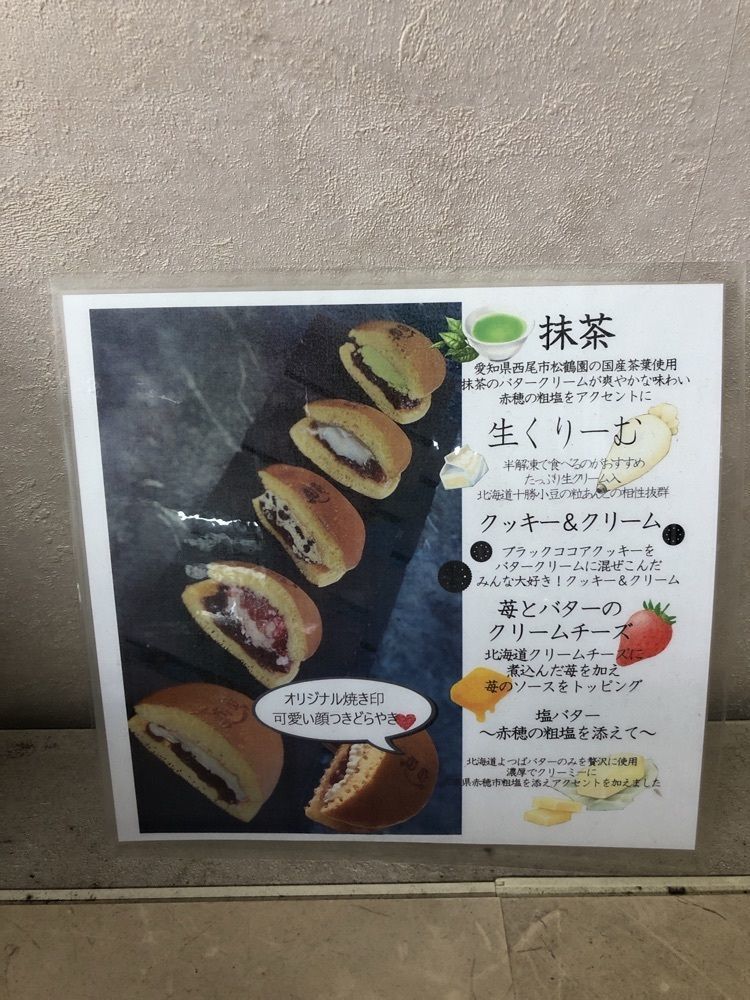 抹茶
愛知県西尾市松鶴園の国産茶葉使用
抹茶のバタークリームが爽やかな味わい
赤穂の粗塩をアクセントに
生くりーむ
半解凍で食べるのがおすすめ
たっぷり生クリーム入
北海道十勝小豆の粒あんとの相性抜群
クッキー＆クリーム
ブラックココアクッキーを
バタークリームに混ぜこんだ
みんな大好き！クッキー＆クリーム
苺とバターの
クリームチーズ
北海道クリームチーズに
煮込んだ苺を加え
苺のソースをトッピング
塩バター
～赤穂の粗塩を添えて～
北海道よつばバターのみを贅沢に使用
濃厚でクリーミーに
県赤穂市粗塩を添えアクセントを加えました
オリジナル焼き印
可愛い顔つきどらやき